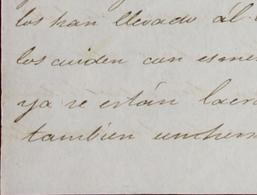 los han llevado ál
los cuiden con esme
ya se están
tambien un